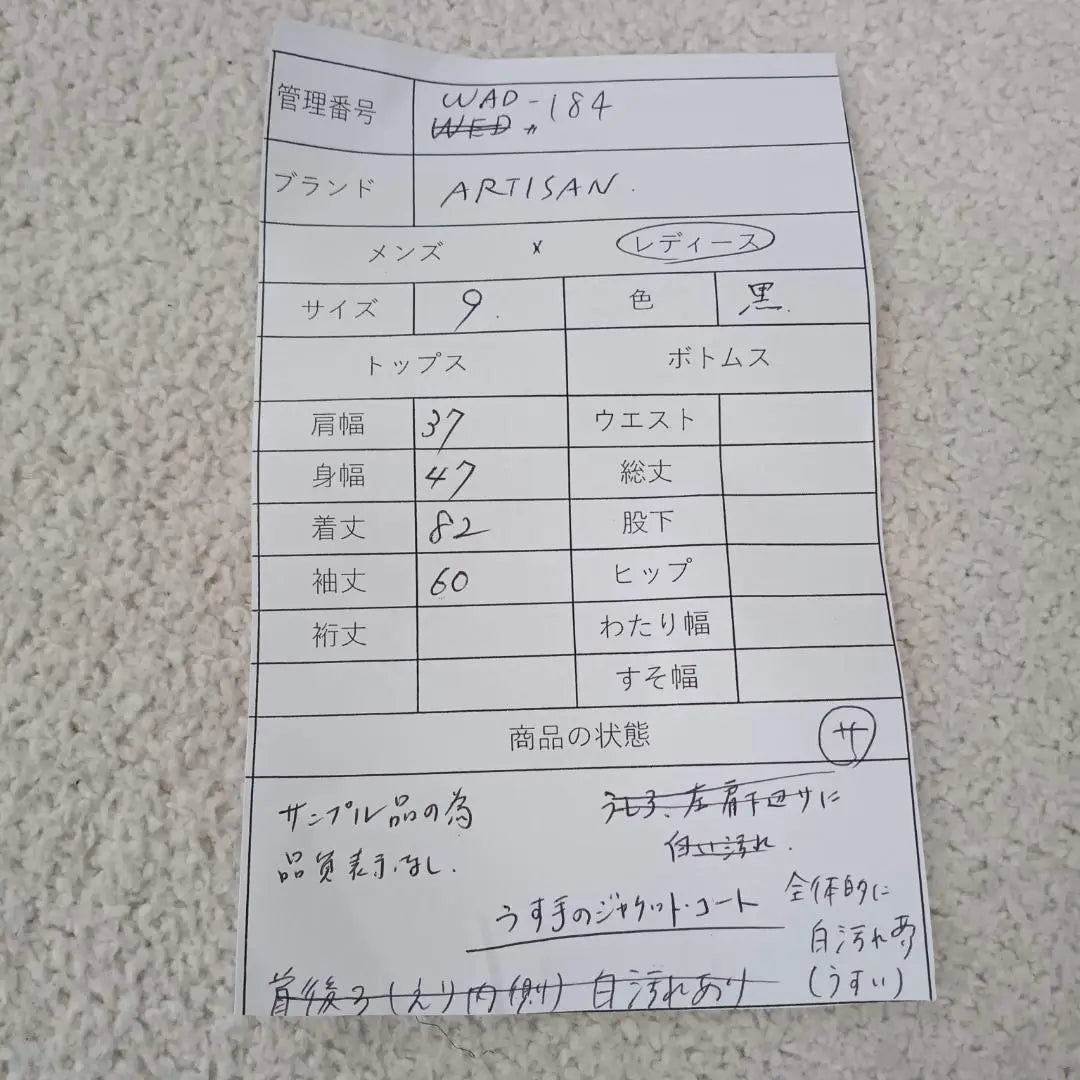 管理番号 WAD-184
WED〃
ブランド ARTISAN.
メンズ × レディース
サイズ 9. 色 黒.
トップス ボトムス
肩幅 37 ウエスト
身幅 47 総丈
着丈 82 股下
袖丈 60 ヒップ
裄丈 わたり幅
すそ幅
商品の状態 サ
サンプル品の為
品質表示なし.
うしろ、左肩下辺りに
白い汚れ.
うす手のジャケット・コート
全体的に
白汚れあり
(うすい)
首後ろ(えり内側)白汚れあり